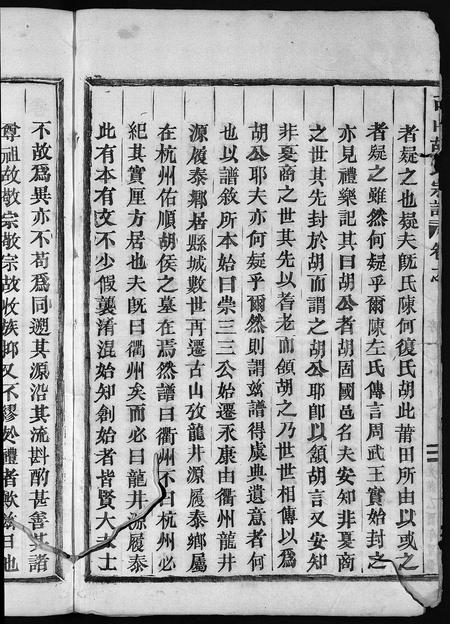 者疑之也疑夫旣氏陳何復氏胡此莆田所由以或之
者疑之雖然何疑乎爾陳左氏傳言周武王實始封之
亦見禮樂記其曰胡公者胡固國邑名夫安知非夏商
之世其先封於胡而謂之胡公耶卽以頷胡言又安知
非夏商之世其先以耆老而頷胡之乃世世相傳以爲
胡公耶夫亦何疑乎爾然則謂玆譜得虞典遺意者何
也以譜敘所本始曰崇三三公始遷永康由衢州龍井
源履泰鄉居縣城數世再遷古山攷龍井源履泰鄉屬
在杭州佑順胡侯之墓在焉然譜曰衢州不曰杭州必
紀其實厘方居也夫旣曰衢州矣而必曰龍井源履泰
此有本有文不少假襲淆混始知創始者皆賢大夫士
不故爲異亦不苟爲同遡其源沿其流斟酌甚善其諸
尊祖故敬宗敬宗故收族抑又不繆於禮者歟